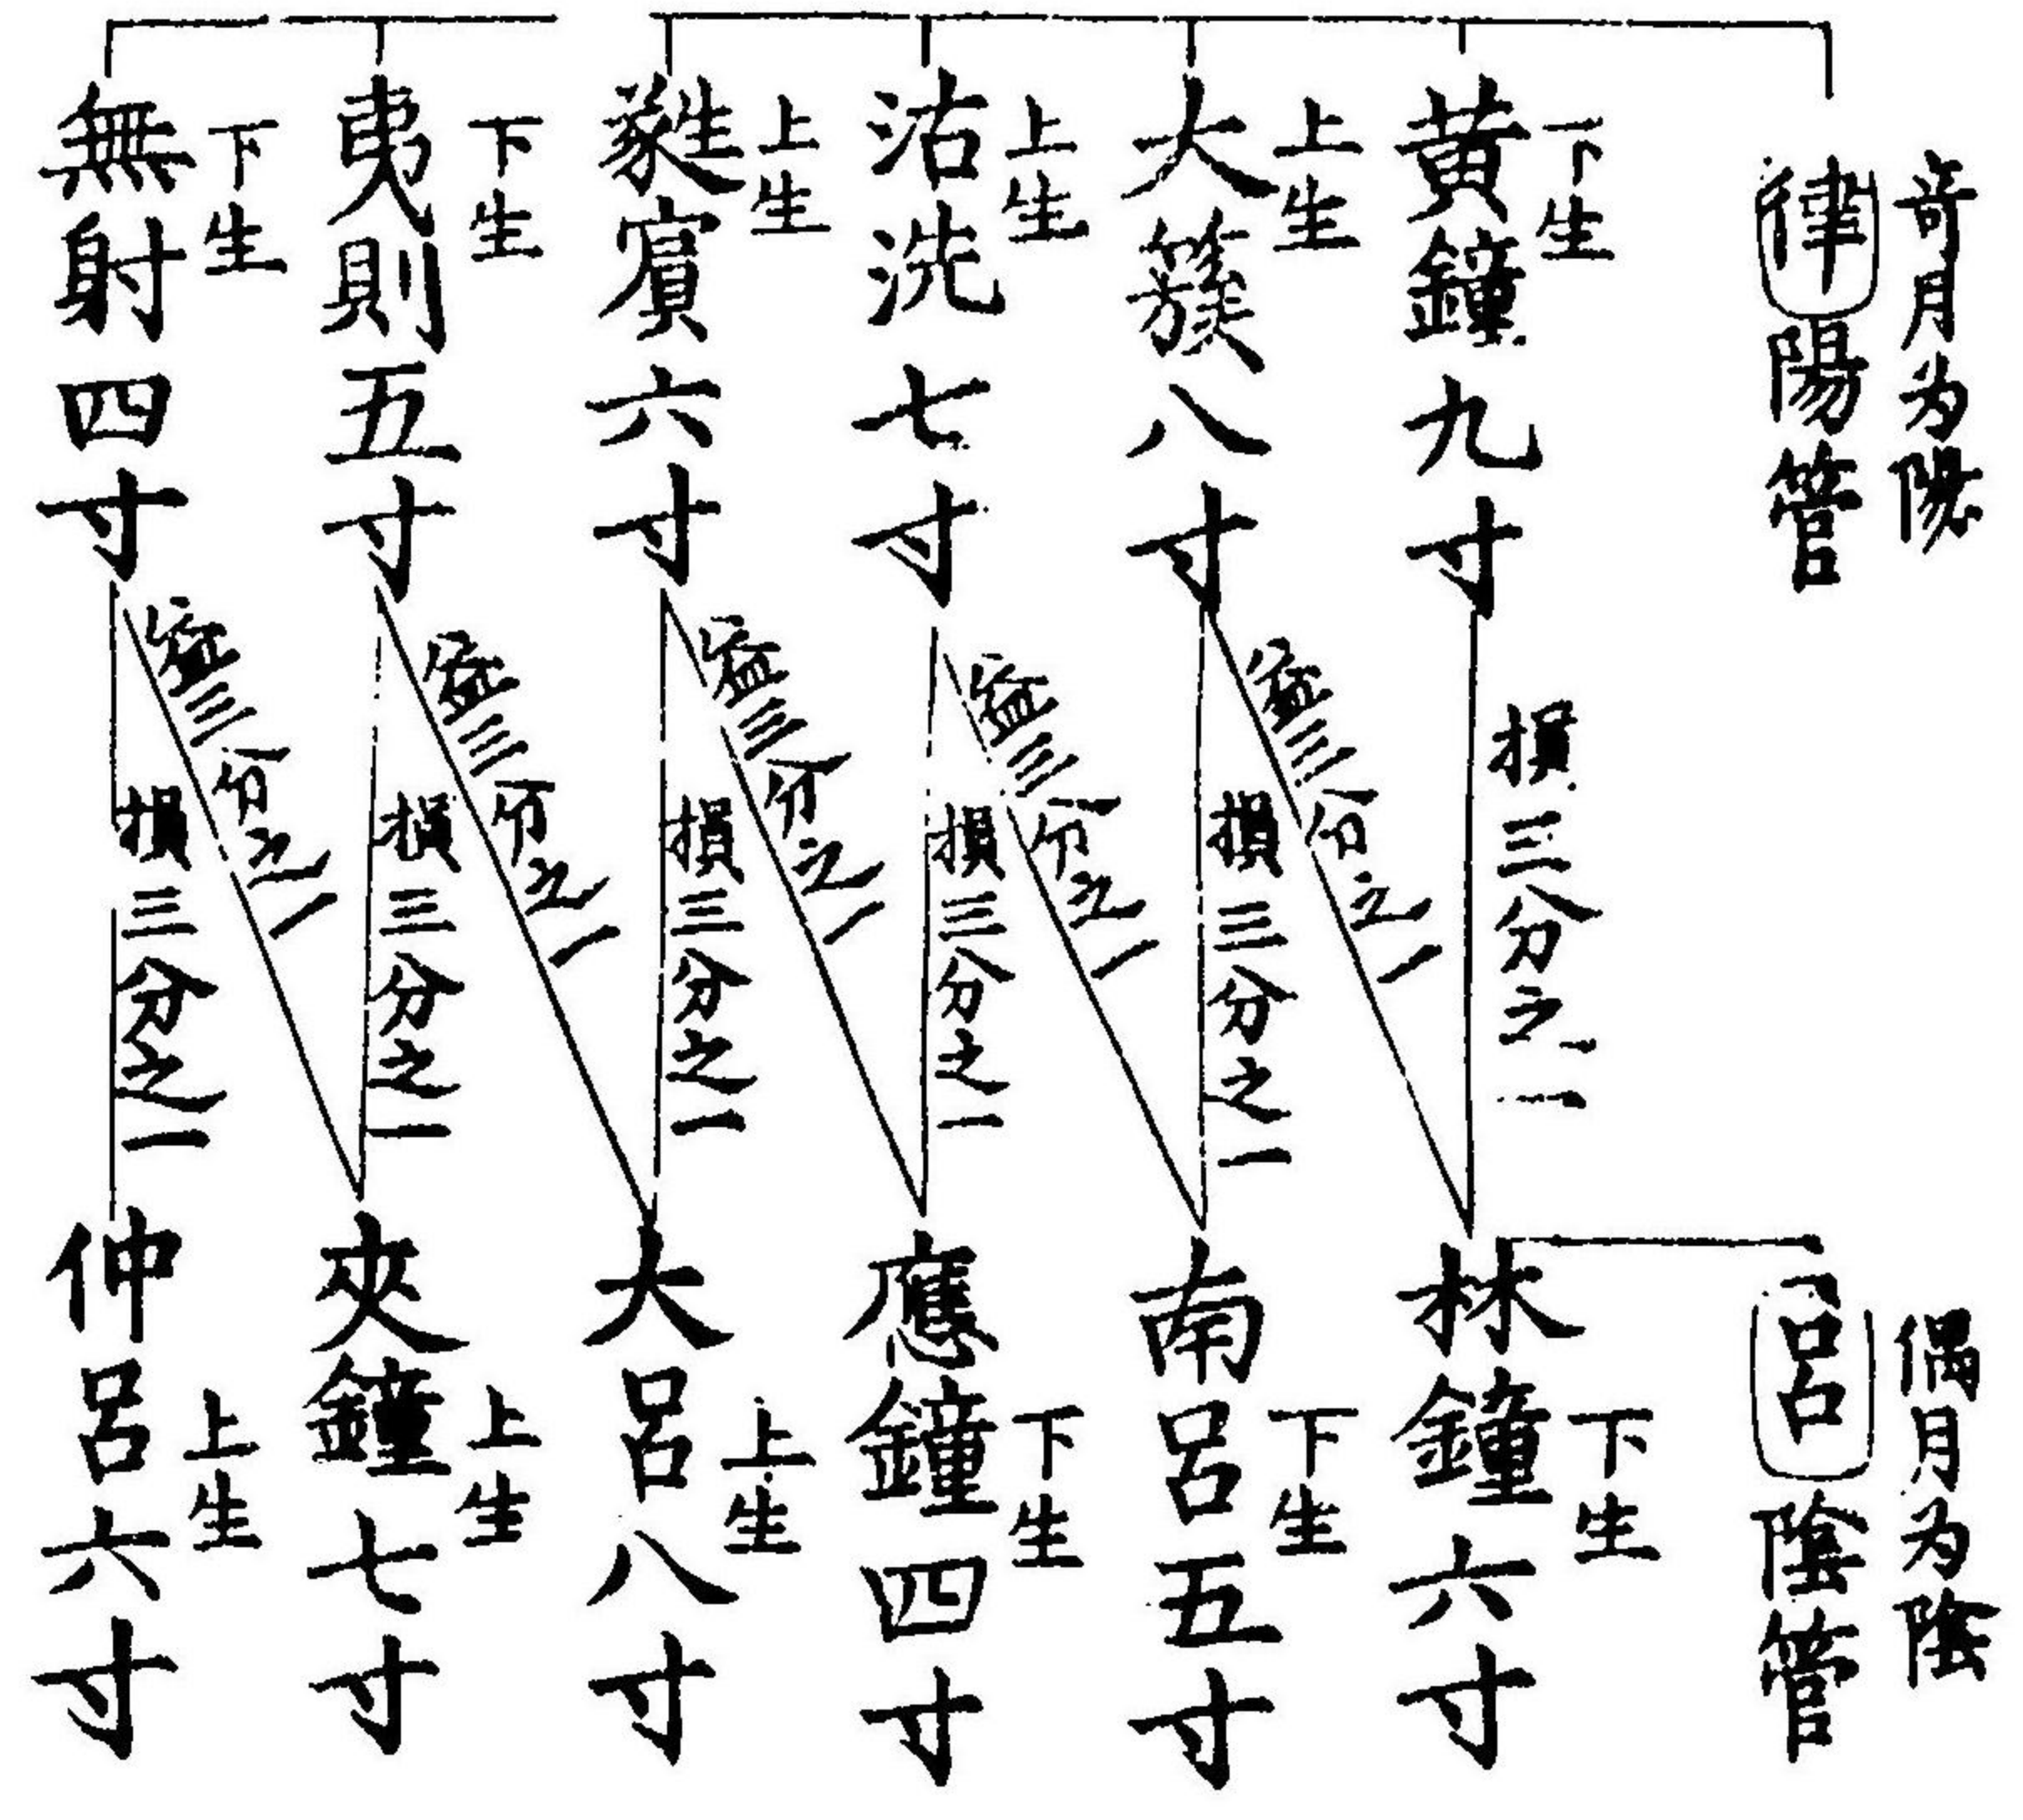 奇月为陽
律陽管
下生
黄鐘九寸
上生
大簇八寸
上生
沽洗七寸
上生
蕤賓六寸
下生
夷則五寸
下生
無射四寸
損三分之一
益三分之一
損三分之一
益三分之一
損三分之一
益三分之一
損三分之一
益三分之一
損三分之一
益三分之一
損三分之一
偶月为陰
呂陰管
下生
林鐘六寸
下生
南呂五寸
下生
應鐘四寸
上生
大呂八寸
上生
夾鐘七寸
上生
仲呂六寸